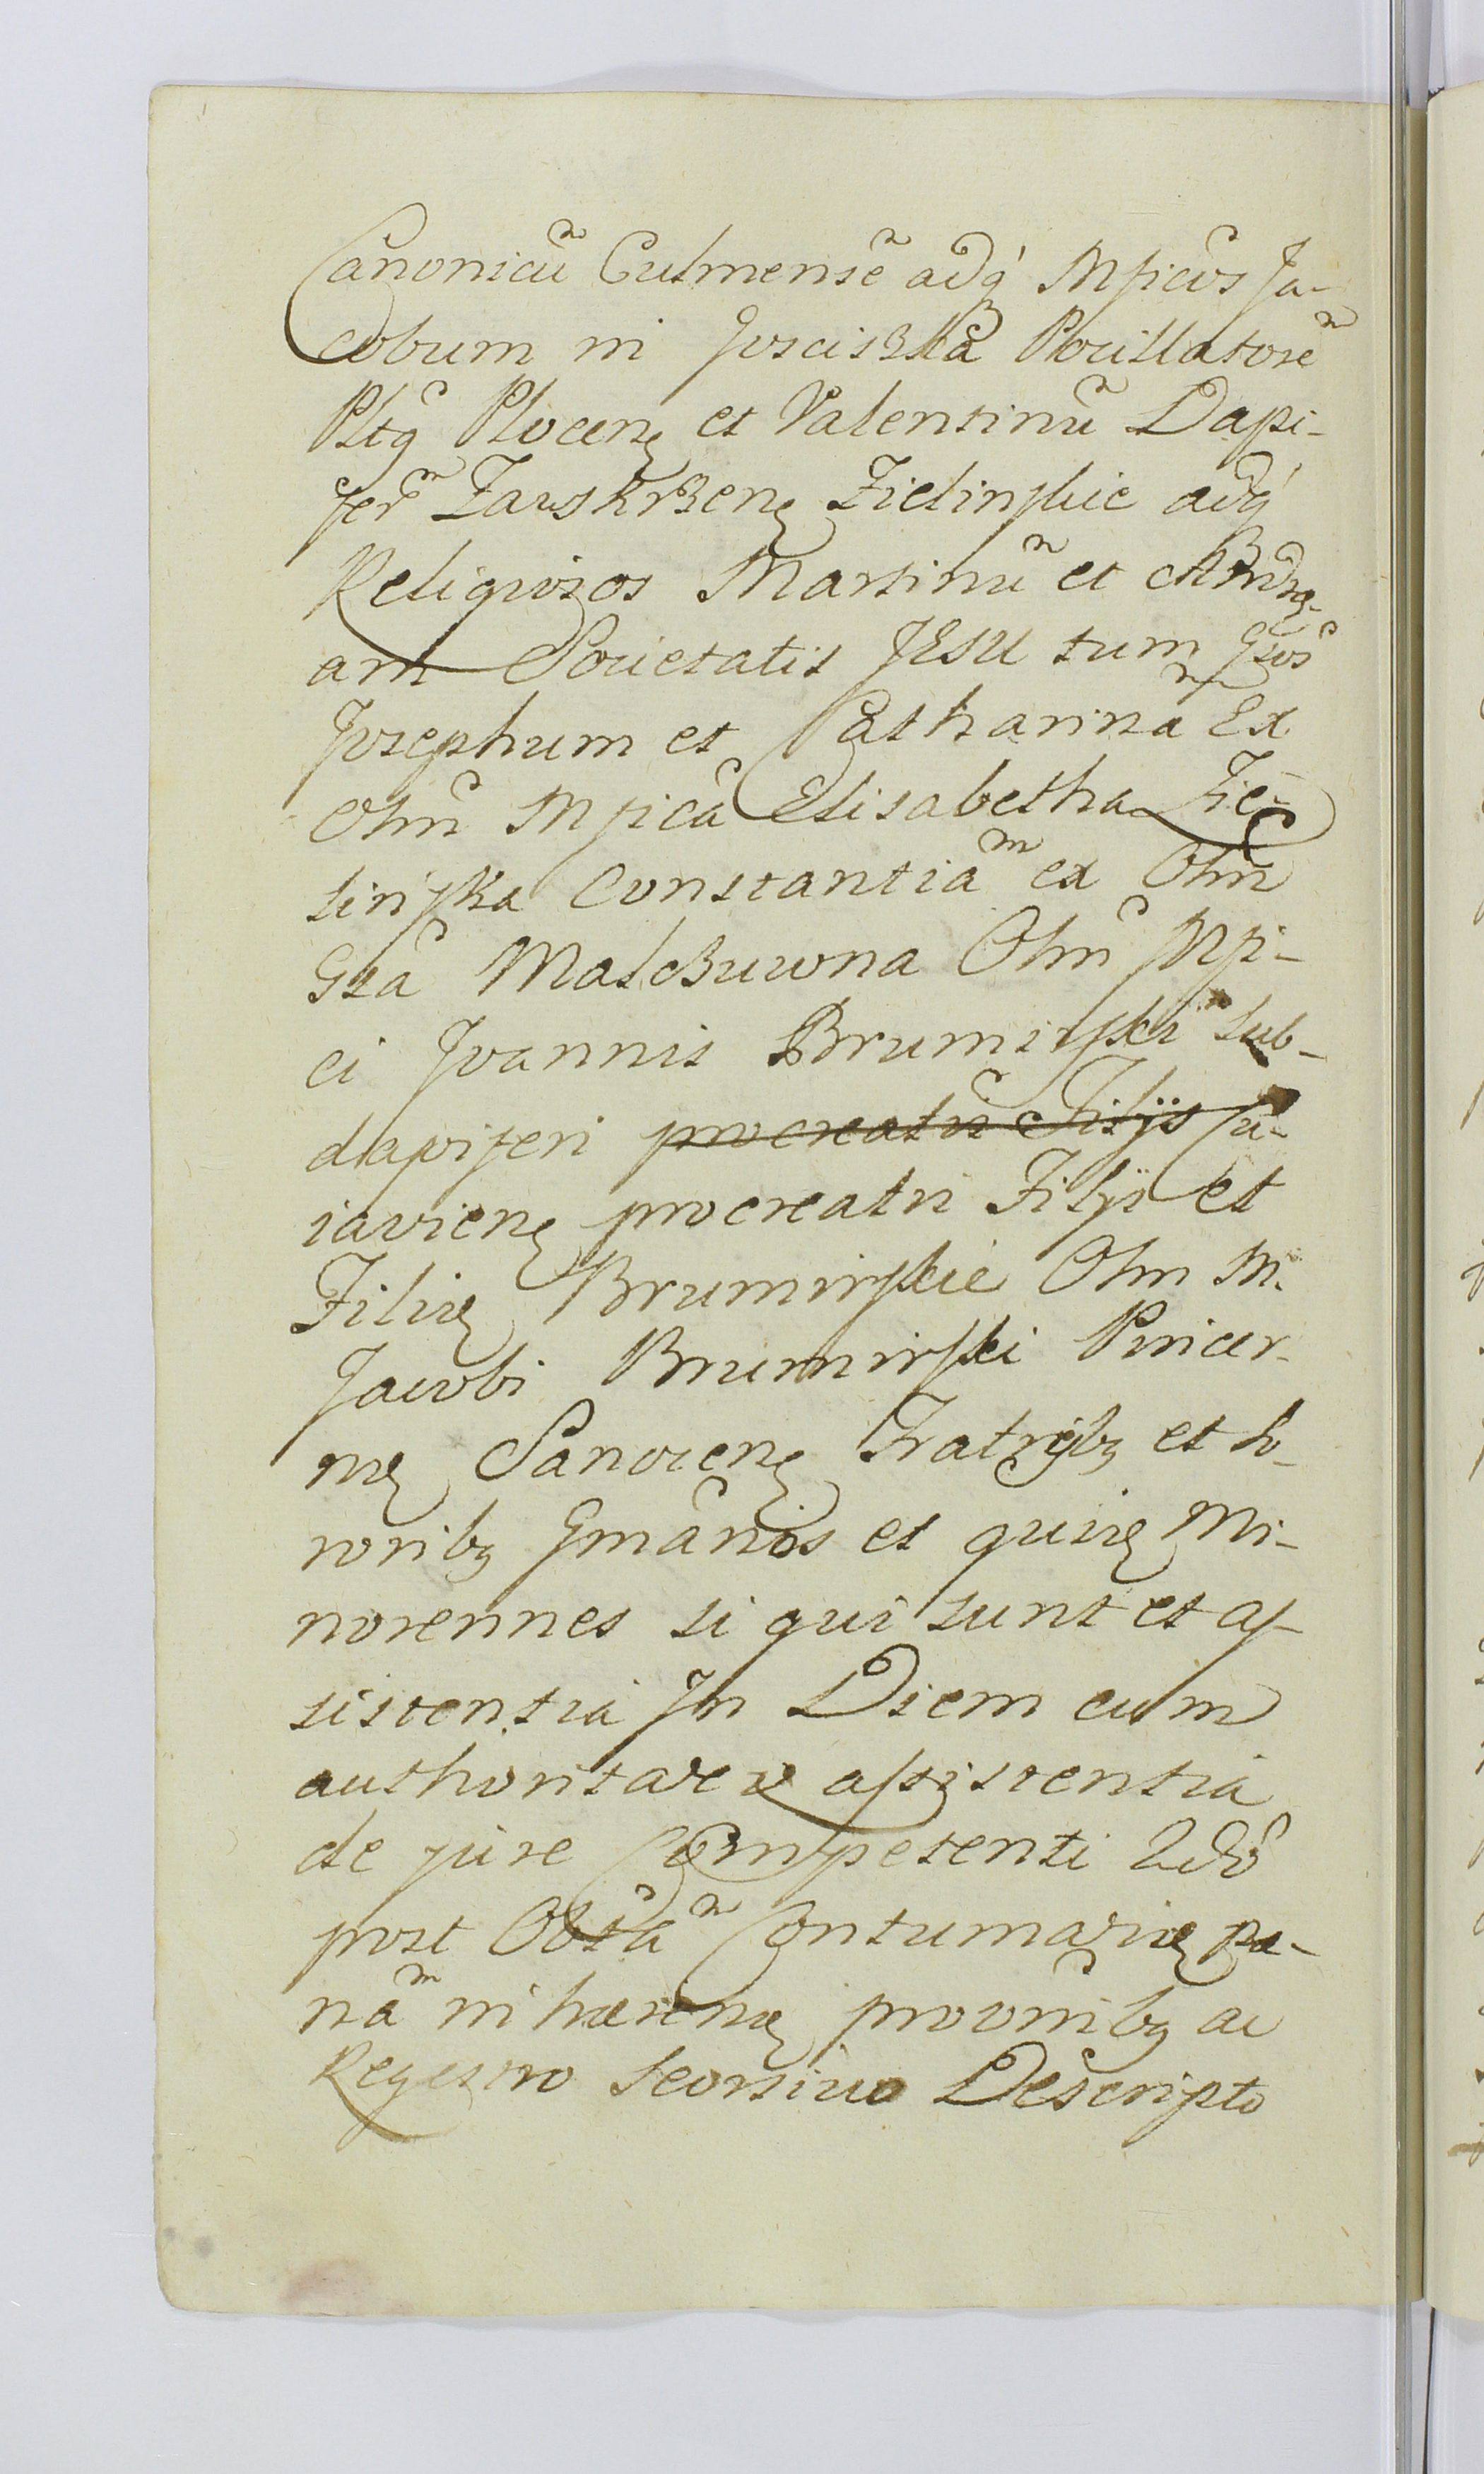 Canonicu᷉ Culmense᷉ adq́ Mficos Ja-
cobum in Joscis3ka Pocillatore᷉
Pltq Plocen et Valentinu᷉ Dapi-
fer᷉ Zawskr3en Zielinskie adq́
Religiosos Martinu᷉ et Andre-
am Societatis JESU tum Gsos
Josephum et Catharina᷉ Ex
Olim Mfica Elisabetha Zie-
linska Constantia᷉ ex Olim
Gsa Malc3uwna Olim Mfi-
ci Joannis Brumirski sub-
dapiferi procreatis Filijs Cu-
iavien procreatis Filijs et
Filię Brumirskie Olim M.
Jacobi Brumirski Pincer-
nę Sanocen Fratribq et so-
roribq Gmanos et quivę Mi-
norennes si qui sunt et as-
sistentia In Diem cum
authoritate & assistentia
de jure Competenti
post Contumacię pæ-
na᷉ in hærenę provinibq ac
Regestro seorsivo Descripto